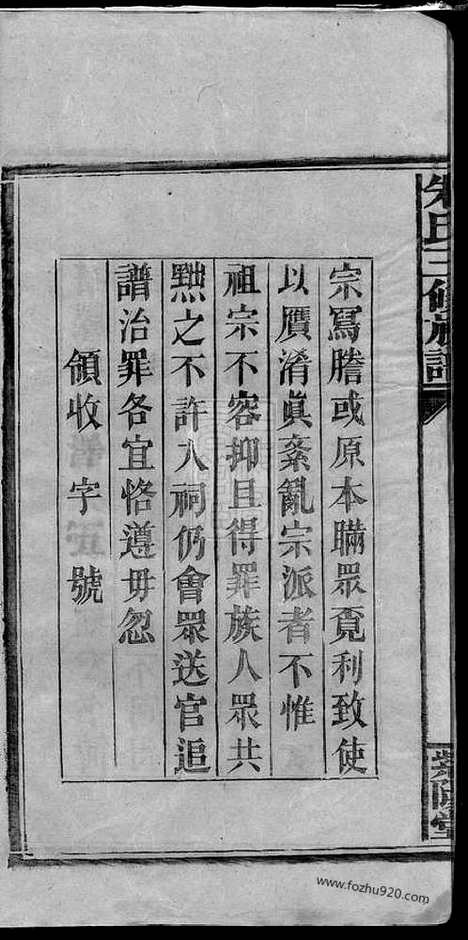 朱氏三修族譜
宗冩謄或原本瞞眾覔利致使
以贋淆眞紊亂宗派者不惟
祖宗不容抑且得罪族人眾共
黜之不許入祠仍會眾送官追
譜治罪各宜恪遵毋忽
領收 字 號
紫陽堂
www.fozhu920.com